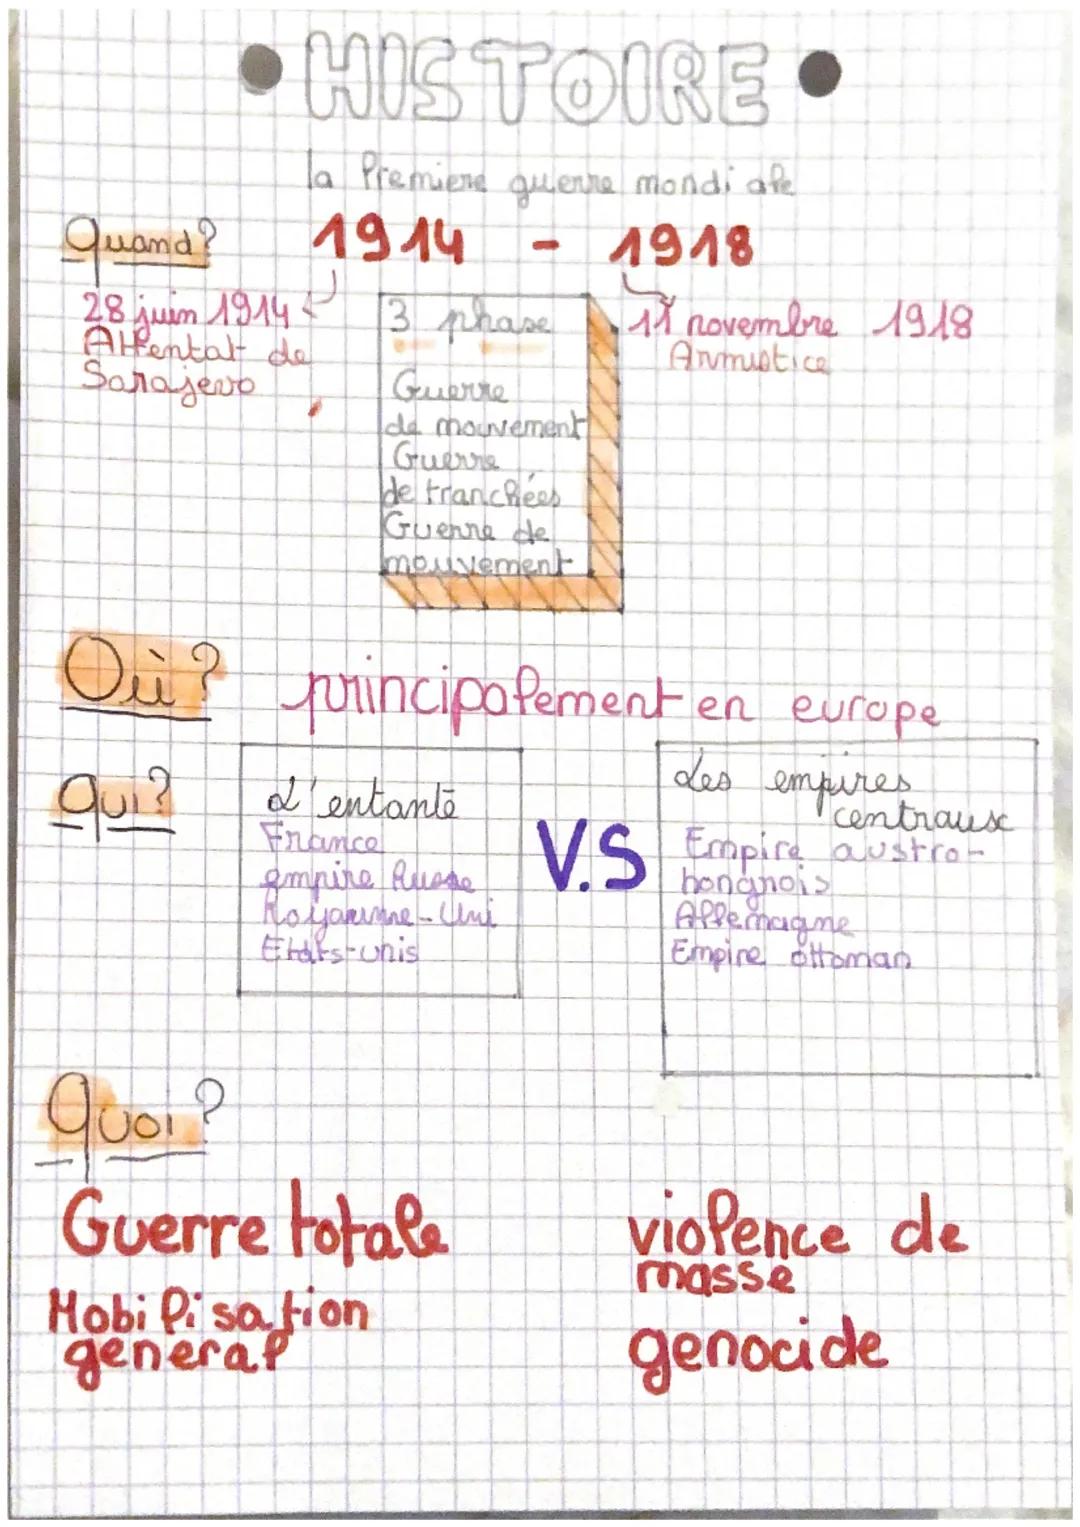 HISTOIRE
la Premiere guerre mondiale
Quand?
1914 - 1918
28 juin 1914
Attentat de
Sarajevo
3 phase
Guerre
de mouvement
Guerre
de tranchées
Guerre de
mouvement
11 novembre 1918
Armistice
Où? principalement en europe
Qui?
L'entante
France
empire Russe
Royaume-Uni
Etats-unis
V.S
Les empires
centraux
Empire austro-
hongrois
Allemagne
Empire ottoman
Quoi?
Guerre totale
Mobilisation
general
violence de
masse
genocide